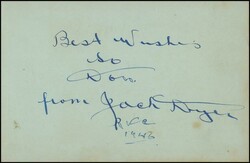 Best Wishes
to
Don
from Jack Dyer
1946